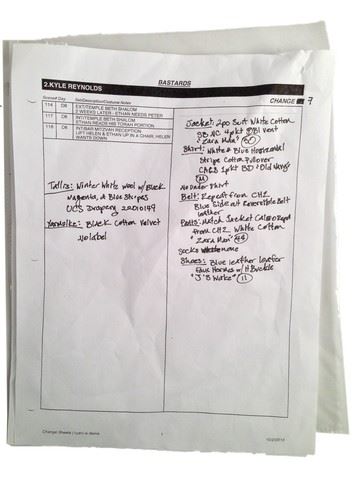 BASTARDS
2.KYLE REYNOLDS
CHANGE # 7
Scene# Day Set/Description/Costume Notes
114 D8 EXT/TEMPLE BETH SHALOM
2 WEEKS LATER - ETHAN NEEDS PETER
117 D8 INT/TEMPLE BETH SHALOM
ETHAN READS HIS TORAH PORTION
118 D8 INT/BAR MITZVAH RECEPTION
LIFT HELEN & ETHAN UP IN A CHAIR, HELEN
WANTS DOWN
Tallis: Winter White wool w/ Black
Magenta, & Blue Stripes
UCS Drapery 22010149
Yarmulke: Black Cotton Velvet
No label
Jacket: 2pc Suit White Cotton
SB NC 4pkt 2Btn vent
"Zara Man" 50
Shirt: White & Blue Horizontal
Stripe Cotton Pullover
1pkt BD "Old Navy"
M
No Under Shirt
Belt: Repeat from CH2
Blue Side of Reversible Belt
leather
Pants: Match Jacket
from CH2 White Cotton
"Zara Man" 44
Socks none
Shoes: Blue leather loafer
Faux Hermes w/ H Buckle
11
Change Sheets
1